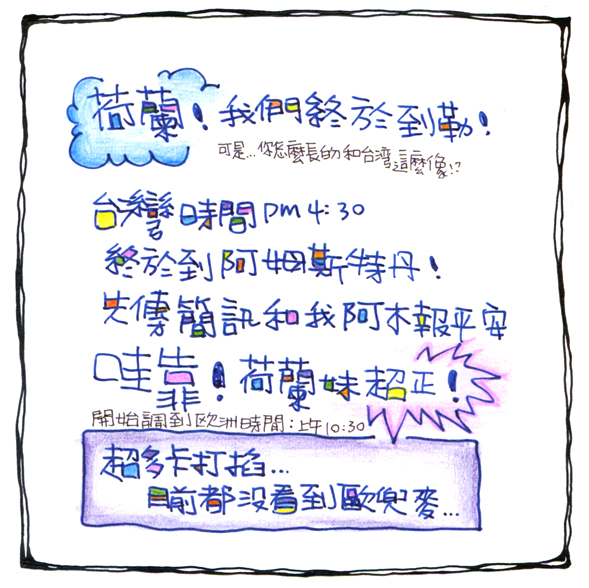 荷蘭！我們終於到勒！
可是...你怎麼長的和台湾這麼像!?
台灣時間pm 4:30
終於到阿姆斯特丹！
先傳簡訊和我阿木報平安
哇靠！荷蘭妹超正！
開始調到歐洲時間：上午10:30
超多卡打掐...
目前都沒看到歐兜麥...